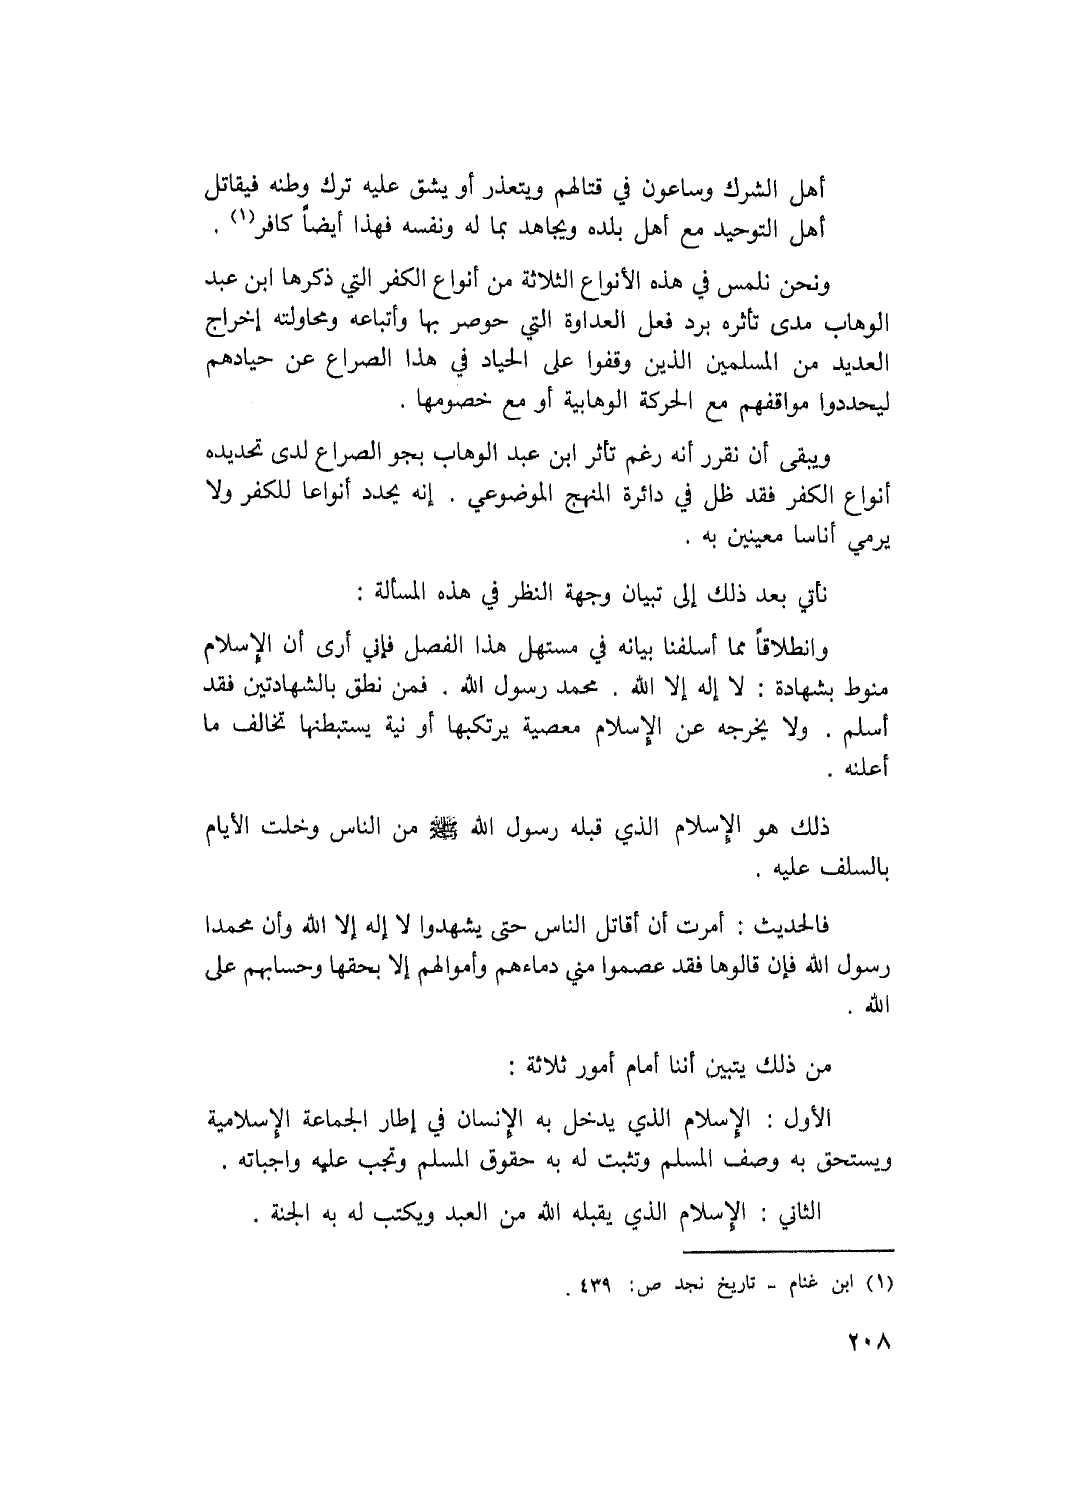 أهل الشرك وساعون في قتالهم ويتعذر أو يشق عليه ترك وطنه فيقاتل
أهل التوحيد مع أهل بلده ويجاهد بما له ونفسه فهذا أيضاً كافر(١) .
ونحن نلمس في هذه الأنواع الثلاثة من أنواع الكفر التي ذكرها ابن عبد
الوهاب مدى تأثره برد فعل العداوة التي حوصر بها وأتباعه ومحاولته إخراج
العديد من المسلمين الذين وقفوا على الحياد في هذا الصراع عن حيادهم
ليحددوا مواقفهم مع الحركة الوهابية أو مع خصومها .
ويبقى أن نقرر أنه رغم تأثر ابن عبد الوهاب بجو الصراع لدى تحديده
أنواع الكفر فقد ظل في دائرة المنهج الموضوعي . إنه يحدد أنواعا للكفر ولا
يرمي أناسا معينين به .
نأتي بعد ذلك إلى تبيان وجهة النظر في هذه المسألة :
وانطلاقاً مما أسلفنا بيانه في مستهل هذا الفصل فإني أرى أن الإسلام
منوط بشهادة : لا إله إلا الله . محمد رسول الله . فمن نطق بالشهادتين فقد
أسلم . ولا يخرجه عن الإسلام معصية يرتكبها أو نية يستبطنها تخالف ما
أعلنه .
ذلك هو الإسلام الذي قبله رسول الله ﷺ من الناس وخلت الأيام
بالسلف عليه .
فالحديث : أمرت أن أقاتل الناس حتى يشهدوا لا إله إلا الله وأن محمدا
رسول الله فإن قالوها فقد عصموا مني دماءهم وأموالهم إلا بحقها وحسابهم على
الله .
من ذلك يتبين أننا أمام أمور ثلاثة :
الأول : الإسلام الذي يدخل به الإنسان في إطار الجماعة الإسلامية
ويستحق به وصف المسلم وتثبت له به حقوق المسلم وتجب عليه واجباته .
الثاني : الإسلام الذي يقبله الله من العبد ويكتب له به الجنة .
(١) ابن غنام - تاريخ نجد ص: ٤٣٩ .
٢٠٨